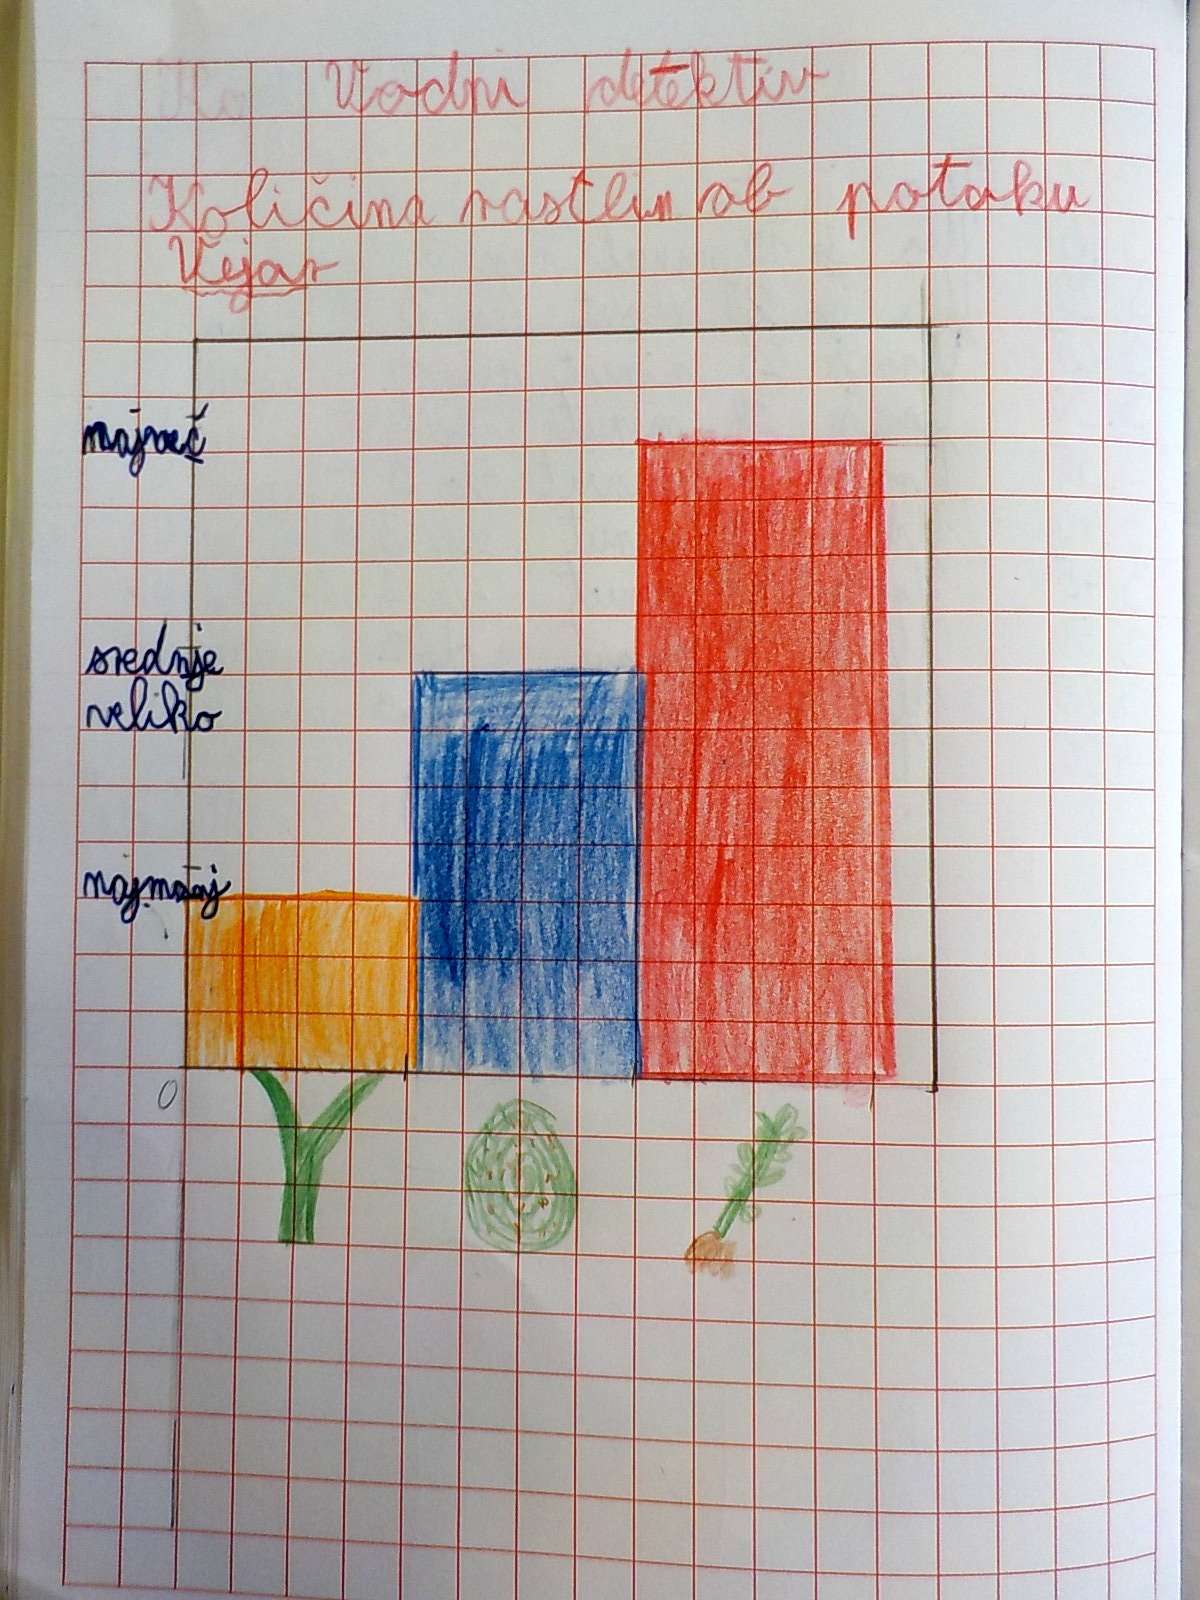 Vodni detektiv
Količina rastlin ob potoku
Vejar
največ
srednje
veliko
najmanj
0